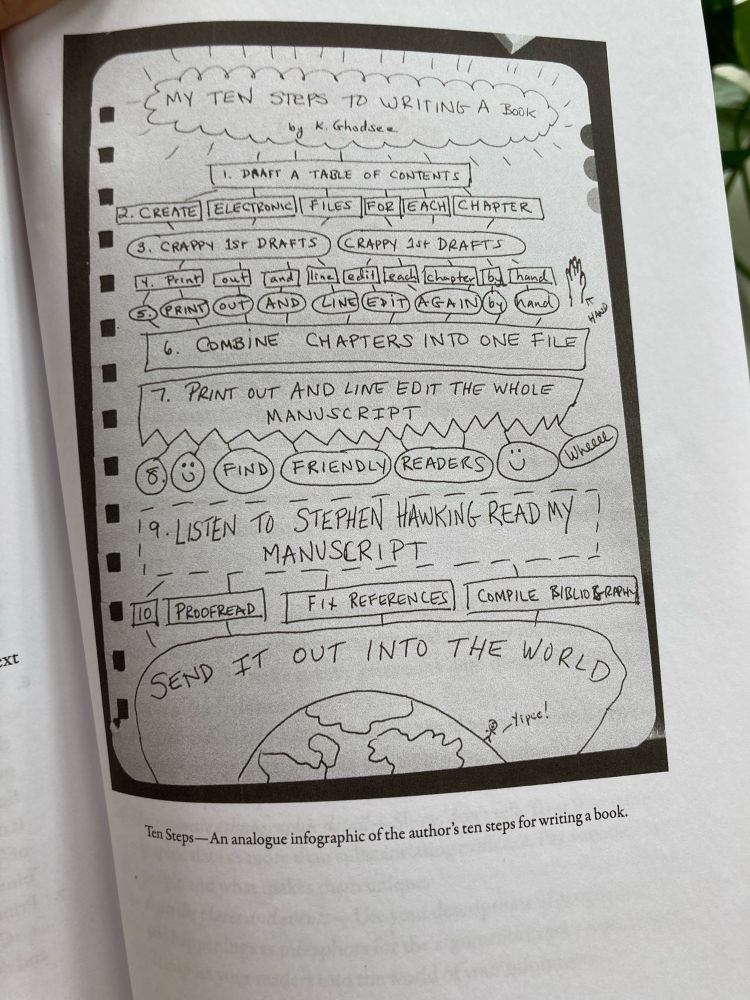 MY TEN STEPS TO WRITING A BOOK
by K. Ghodsee
1. DRAFT A TABLE OF CONTENTS
2. CREATE ELECTRONIC FILES FOR EACH CHAPTER
3. CRAPPY 1st DRAFTS CRAPPY 1st DRAFTS
4. Print out and line edit each chapter by hand
5. PRINT OUT AND LINE EDIT AGAIN by hand
HAND
6. COMBINE CHAPTERS INTO ONE FILE
7. PRINT OUT AND LINE EDIT THE WHOLE
MANUSCRIPT
8. FIND FRIENDLY READERS Wheeee
9. LISTEN TO STEPHEN HAWKING READ MY
MANUSCRIPT
10 PROOFREAD FIX REFERENCES COMPILE BIBLIOGRAPHY
SEND IT OUT INTO THE WORLD
Yipee!
Ten Steps—An analogue infographic of the author's ten steps for writing a book.